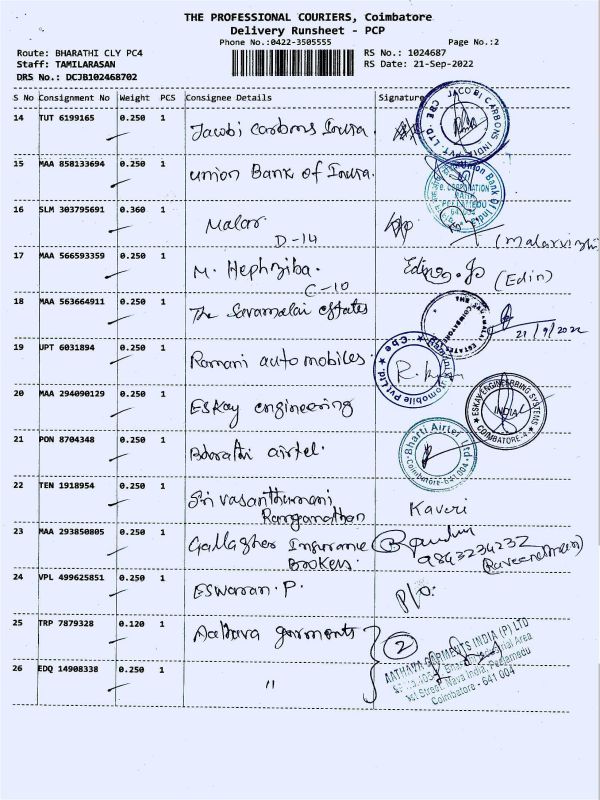 THE PROFESSIONAL COURIERS, Coimbatore
Delivery Runsheet - PCP
Phone No.:0422-3505555 Page No.:2
Route: BHARATHI CLY PC4 RS No.: 1024687
Staff: TAMILARASAN RS Date: 21-Sep-2022
DRS No.: DCJB102468702
S No Consignment No Weight PCS Consignee Details Signature
14 TUT 6199165 0.250 1 Jacobi Carbons India
JACOBI CARBONS INDIA PVT. LTD. CBE
15 MAA 858133694 0.250 1 Union Bank of India.
Union Bank of India
16 SLM 303795691 0.360 1 Malar
D-14
17 MAA 566593359 0.250 1 M. Hephziba. (Edin)
C-10
18 MAA 563664911 0.250 1 The estates 21/9/2022
19 UPT 6031894 0.250 1 Ramani automobiles.
20 MAA 294090129 0.250 1 ESKay engineering
ESKAY ENGINEERING SYSTEMS
INDIA
COIMBATORE-4
21 PON 8704348 0.250 1 Bharathi airtel.
Bharti Airtel Ltd
Coimbatore-641 004
22 TEN 1918954 0.250 1 Sri vasanthamani Kaveri
Ranganathan
23 MAA 293850805 0.250 1 Gallagher Insurance 9843234232
Brokers.
24 VPL 499625851 0.250 1 ESwaran.P. P/O.
25 TRP 7879328 0.120 1 Aathava garments 2
AATHAVA GARMENTS INDIA (P) LTD
1st Street, Nava India, Peelamedu
Coimbatore - 641 004
26 EDQ 14908338 0.250 1 "